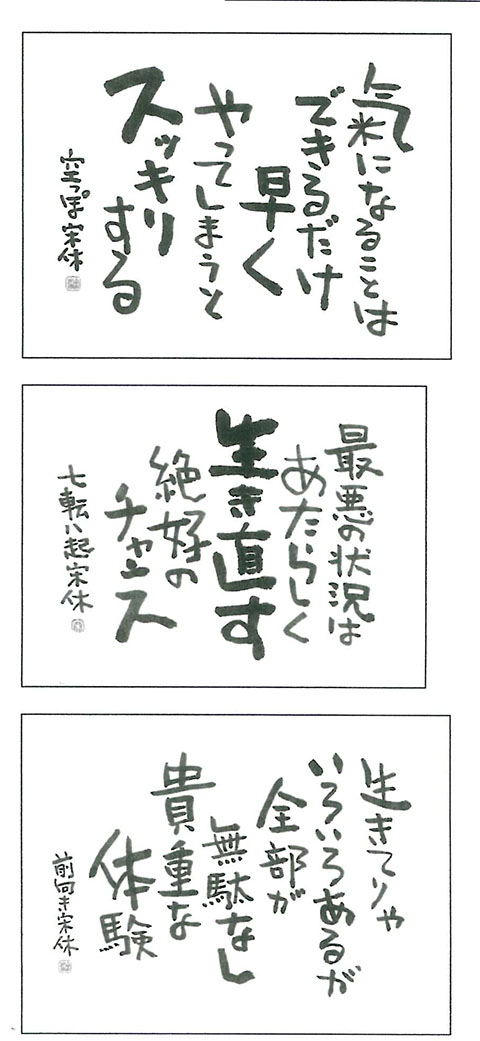 氣になることは
できるだけ
早く
やってしまうと
スッキリ
する
空っぽ宋休
最悪の状況は
あたらしく
生き直す
絶好の
チャンス
七転八起宋休
生きてりゃ
いろいろあるが
全部が
無駄なし
貴重な
体験
前向き宋休